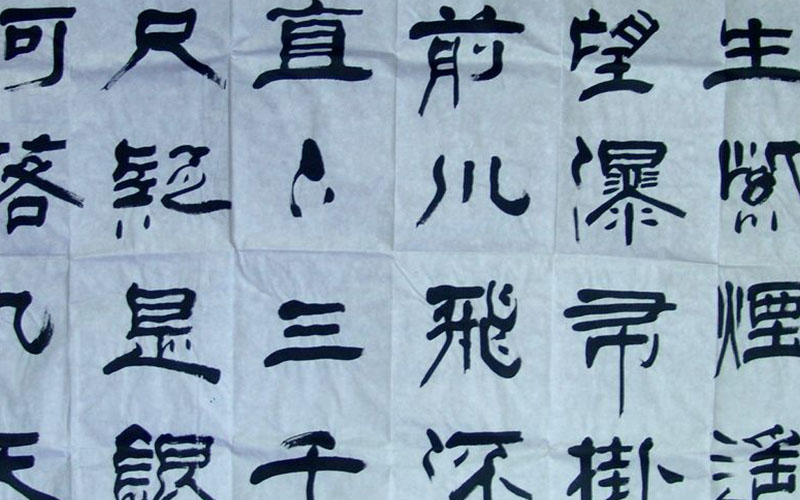 生紫煙遥
望瀑布掛
前川飛流
直下三千
尺疑是銀
河落九天